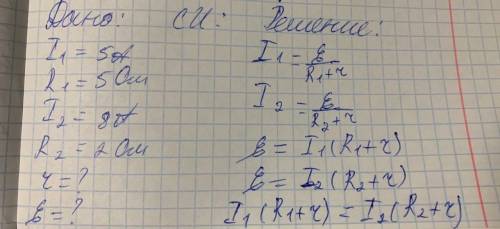 Дано: СИ: Решение:
I₁ = 5А
R₁ = 5 Ом
I₂ = 8А
R₂ = 2 Ом
r = ?
ℰ = ?
I₁ = ℰ/(R₁+r)
I₂ = ℰ/(R₂+r)
ℰ = I₁(R₁+r)
ℰ = I₂(R₂+r)
I₁(R₁+r) = I₂(R₂+r)